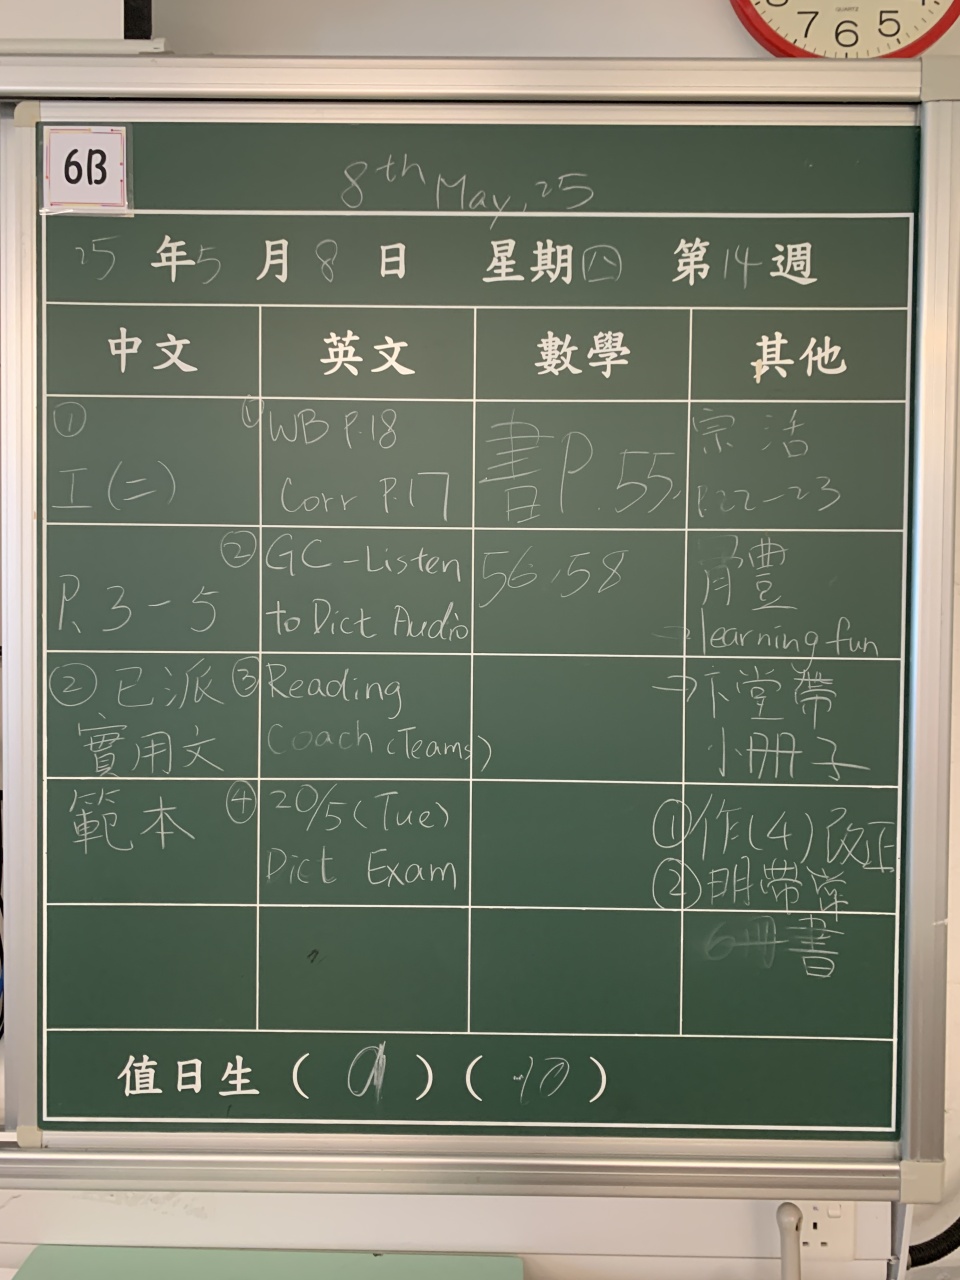 7 6 5
QUARTZ
6B
8th May, 25
25 年 5 月 8 日 星期四 第 14 週
中文 英文 數學 其他
①
工(二)
P. 3 - 5
② 已派
實用文
範本
① WB P.18
Corr P.17
② GC - Listen
to Dict Audio
③ Reading
Coach (Teams)
④ 20/5 (Tue)
Dict Exam
書 P. 55,
56, 58
宗 活
P.22-23
體
→ learning fun
→ 下堂帶
小冊子
① 作(4)改正
② 明帶
6冊書
值日生 ( 9 ) ( 10 )